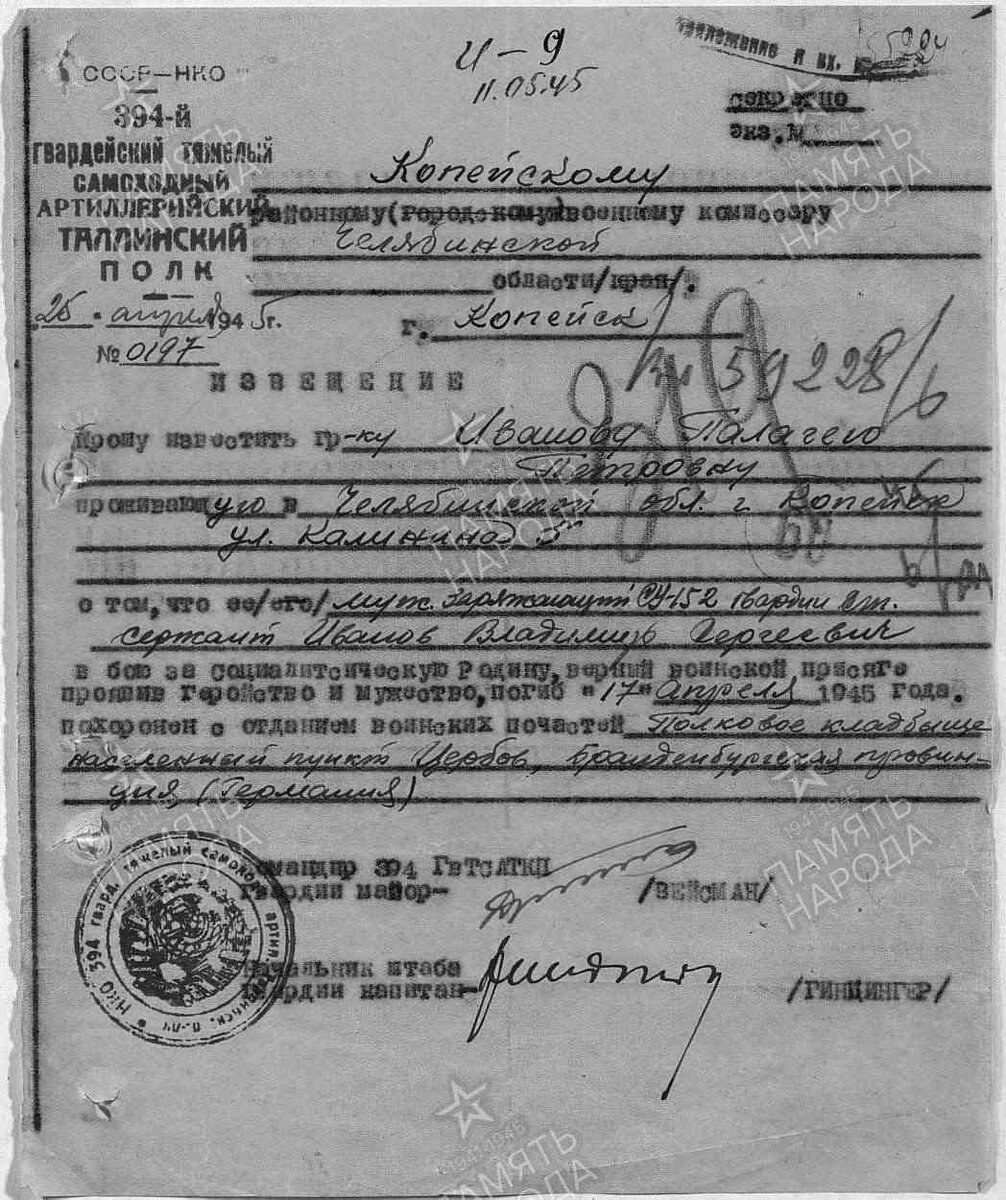 И-9
11.05.45
приложение к вх. №
СССР-НКО
секретно
экз. №
394-й
гвардейский тяжелый
самоходный
артиллерийский
ТАЛЛИНСКИЙ
ПОЛК
Копейскому
районному (городскому) военному комиссару
Челябинской
области/края/.
25 апреля 1945г.
г. Копейск
№ 0197
59228
ИЗВЕЩЕНИЕ
Прошу известить гр-ку Иванову Палагею
Петровну
проживающую в Челябинской обл. г. Копейск
ул. Калинина 5
о том, что ее/его/ муж. заряжающий СУ-152 гвардии ст.
сержант Иванов Владимир Сергеевич
в бою за социалитсическую Родину, верный воинской присяге
проявив Геройство и мужество, погиб "17" Апреля 1945 года.
похоронен с отданием воинских почастей Полковое кладбыще
населенный пункт Цербов, Бранденбургская провин-
ция, (Германия)
Командир 394 ГвТСАТКП
Гвардии майор- /ВЕЙСМАН/
Начальник штаба
Гвардии капитан- /ГИНЦИНГЕР/
НКО 394 гвард. тяжелый самоход. артил.
ПАМЯТЬ НАРОДА
1941-1945